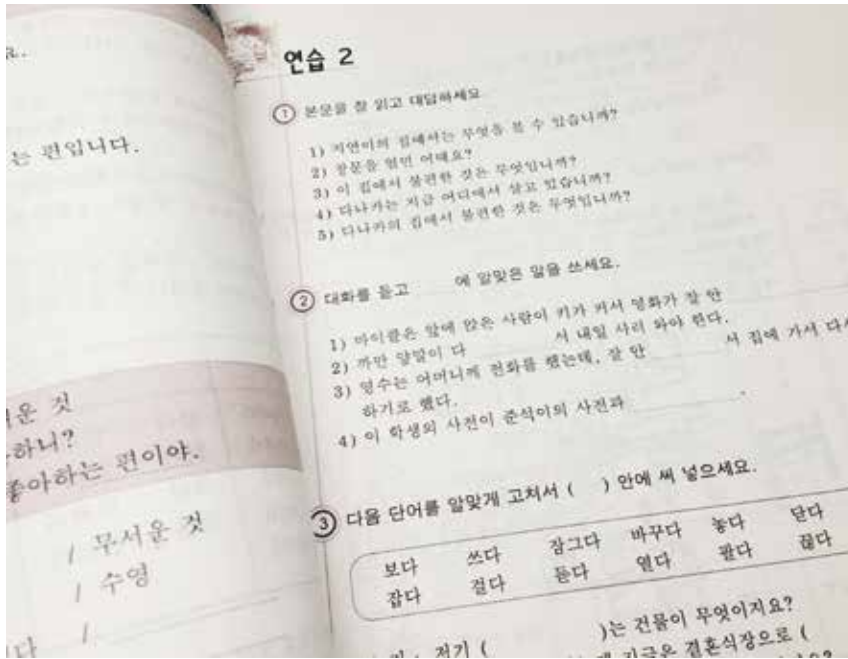 는 편입니다.
운 것
하니?
좋아하는 편이야.
/ 무서운 것
/ 수영
연습 2
① 본문을 잘 읽고 대답하세요
1) 지연이의 집에서는 무엇을 볼 수 있습니까?
2) 창문을 열면 어때요?
3) 이 집에서 불편한 것은 무엇입니까?
4) 다나카는 지금 어디에서 살고 있습니까?
5) 다나카의 집에서 불편한 것은 무엇입니까?
② 대화를 듣고 에 알맞은 말을 쓰세요.
1) 마이클은 앞에 앉은 사람이 키가 커서 영화가 잘 안
2) 까만 양말이 다 서 내일 사러 와야 한다.
3) 영수는 어머니께 전화를 했는데, 잘 안 서 집에 가서 다시
하기로 했다.
4) 이 학생의 사전이 준석이의 사전과 .
③ 다음 단어를 알맞게 고쳐서 ( ) 안에 써 넣으세요.
보다 쓰다 잠그다 바꾸다 놓다 닫다
잡다 걸다 듣다 열다 팔다 끊다
저기 ( )는 건물이 무엇이지요?
지금은 결혼식장으로 (